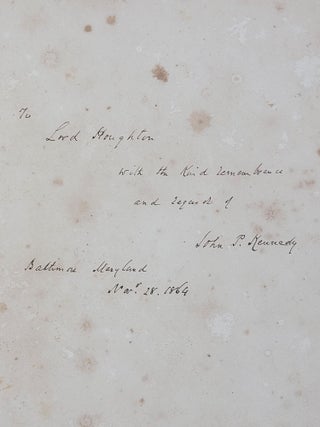 To
Lord Houghton
with the kind remembrance
and regards of
John P. Kennedy
Baltimore Maryland
Novr. 28. 1864